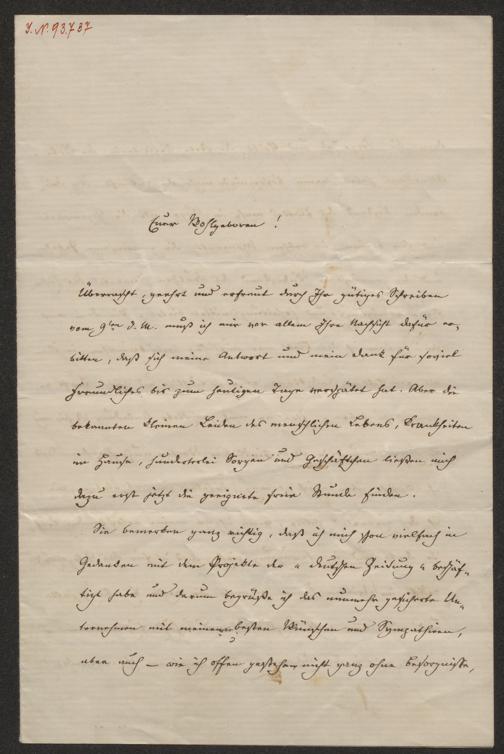 J. N. 93.737
Euer Wohlgeboren!
Überrascht, geehrt und erfreut durch Ihr gütiges Schreiben
vom 9ten d. M. muß ich mir vor allem Ihre Nachsicht dafür er-
bitten, daß sich meine Antwort und mein Dank für soviel
Freundliches bis zum heutigen Tage verspätet hat. Aber die
bekannten kleinen Leiden des menschlichen Lebens, Krankheiten
im Hause, hunderterlei Sorgen und Geschäftchen ließen mich
dazu erst jetzt die geeignete freie Stunde finden.
Sie bemerken ganz richtig, daß ich mich schon vielfach in
Gedanken mit dem Projekte der "deutschen Zeitung" beschäf-
tigt habe und darum begrüße ich das nunmehr gesicherte Un-
ternehmen mit meinen besten Wünschen und Sympathieen,
aber auch – wie ich offen gestehe, nicht ganz ohne Besorgnisse,